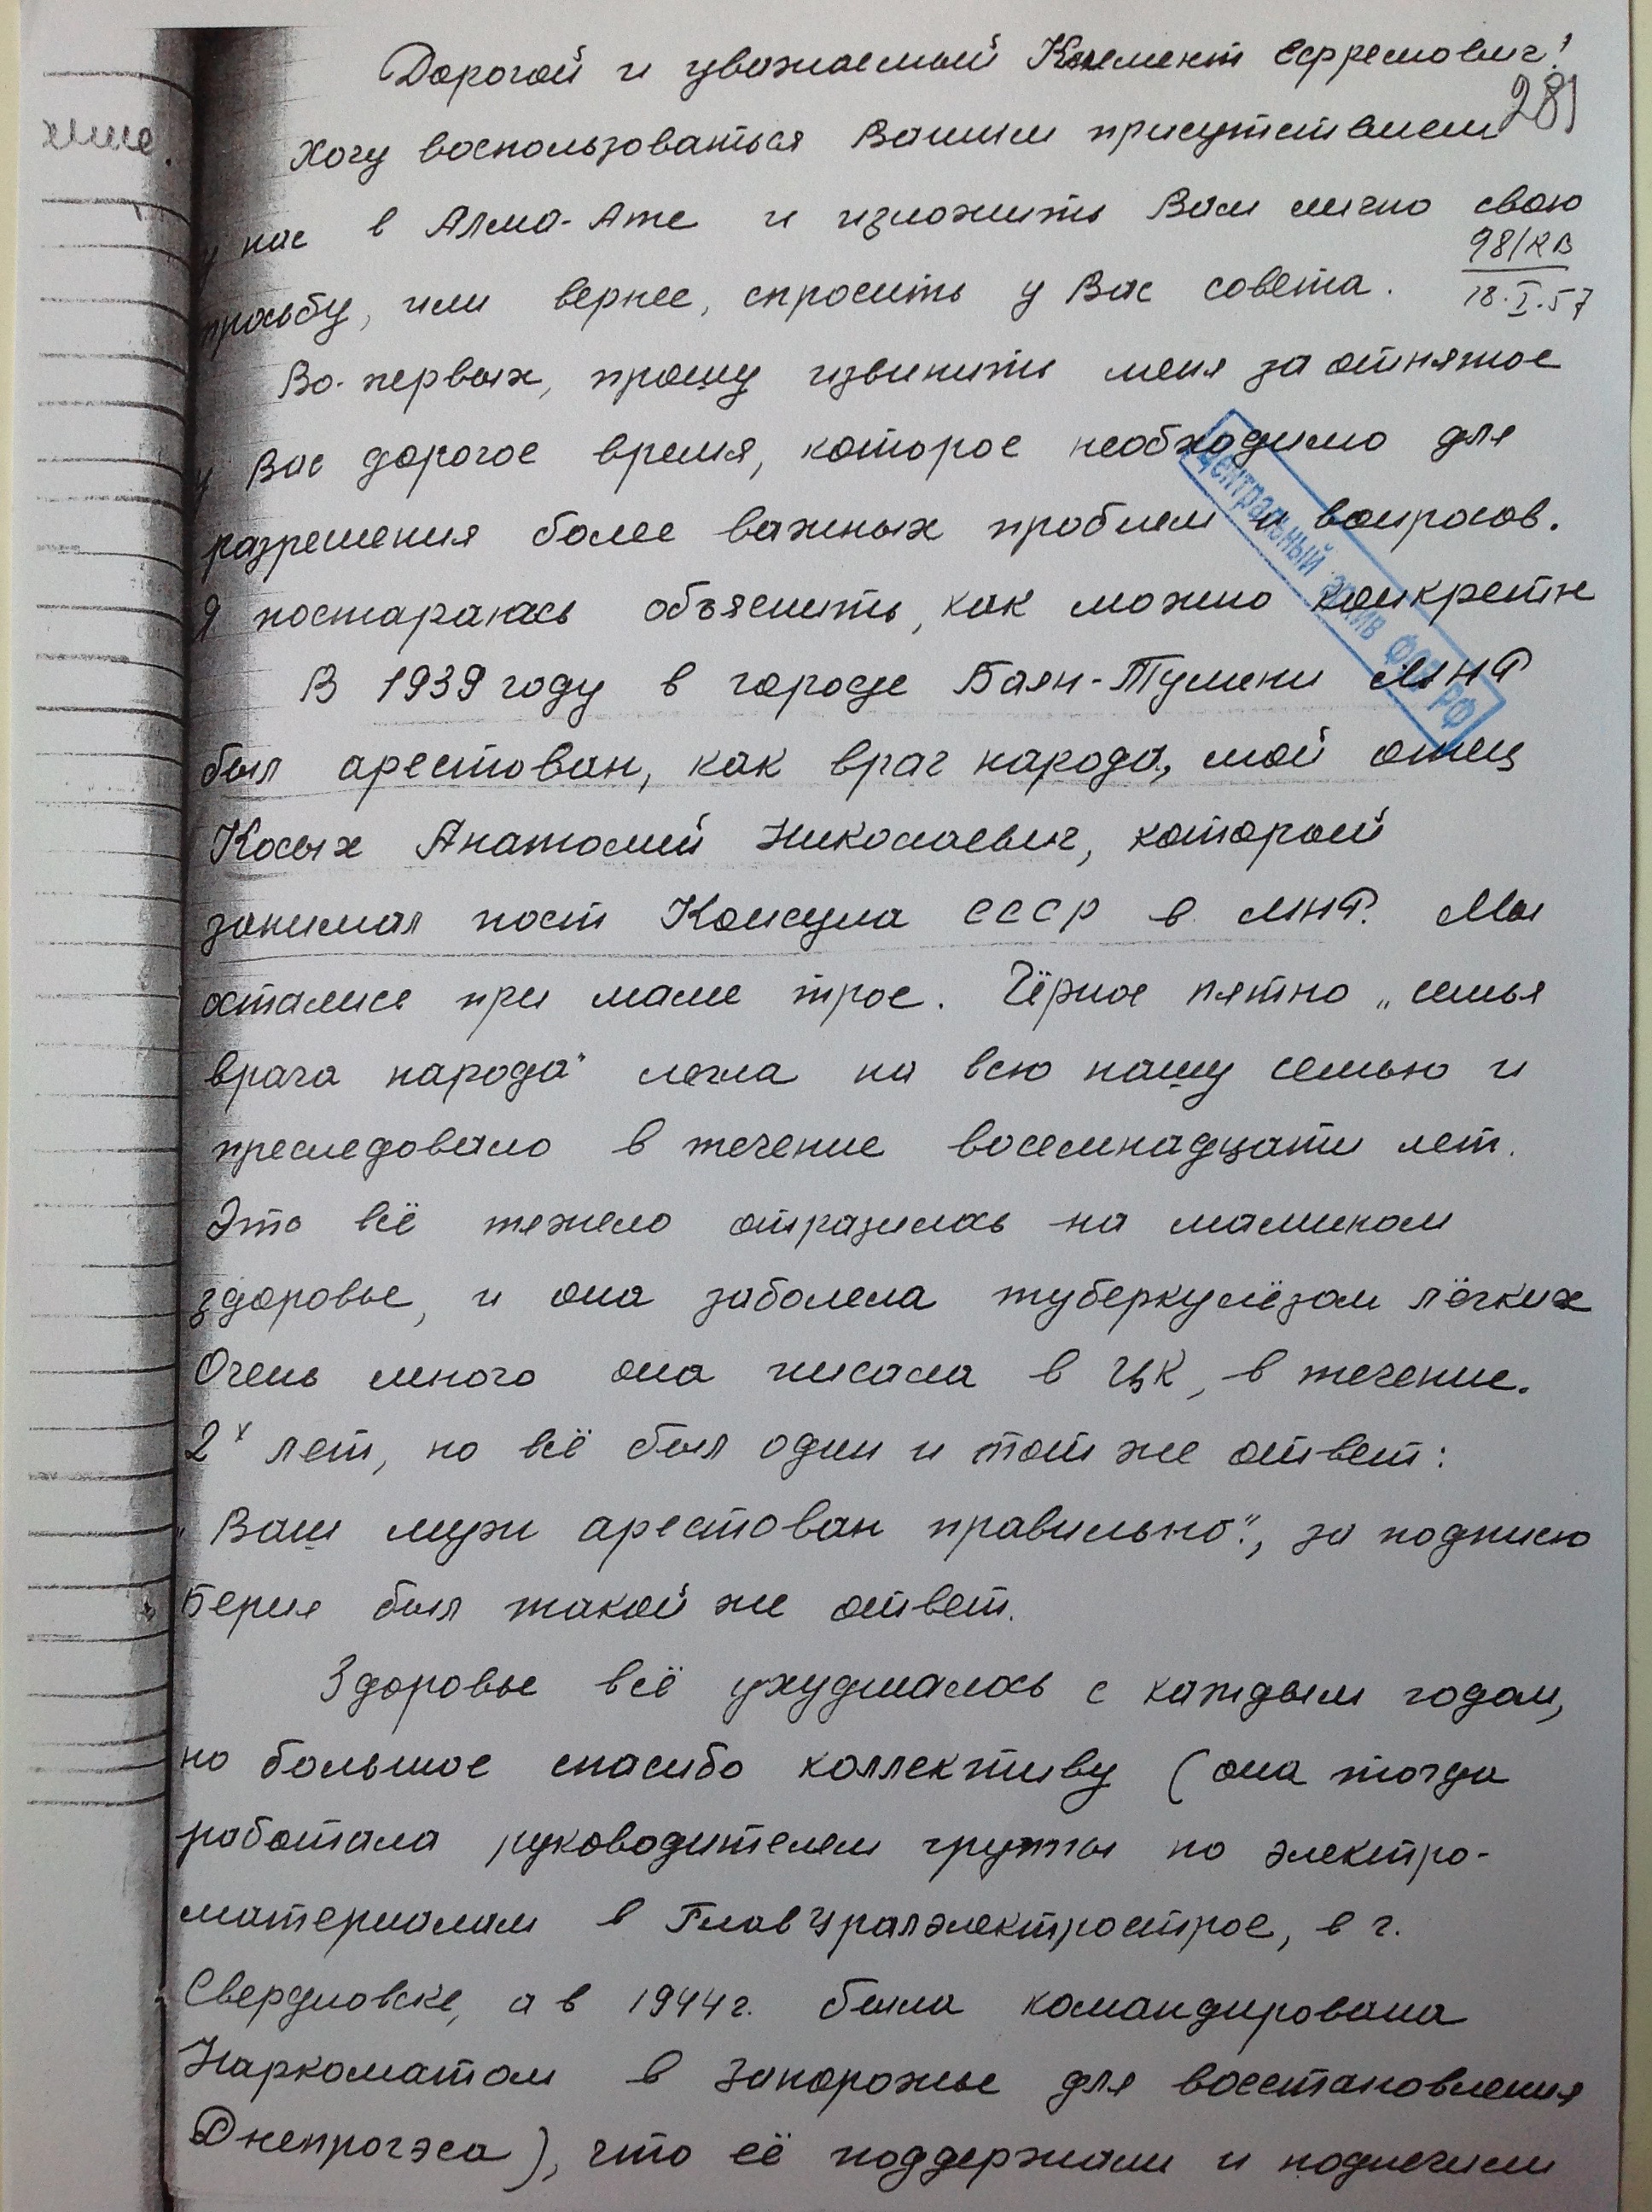 Дорогой и уважаемый Климент Ефремович!
281
Хочу воспользоваться Вашим присутствием
у нас в Алма-Ате и изложить Вам лично свою
98/КВ
просьбу, или вернее, спросить у Вас совета.
18.I.57
Во-первых, прошу извинить меня за отнятое
у Вас дорогое время, которое необходимо для
разрешения более важных проблем и вопросов.
Я постараюсь объяснить, как можно конкретн
В 1939 году в городе Баян-Тумени МНР
был арестован, как враг народа, мой отец
Косых Анатолий Николаевич, который
занимал пост Консула СССР в МНР. Мы
остались при маме трое. Чёрное пятно „семья
врага народа" легла на всю нашу семью и
преследовало в течение восемнадцати лет.
Это всё тяжело отразилось на мамином
здоровье, и она заболела туберкулёзом лёгких
Очень много она писала в ЦК, в течение.
2х лет, но всё был один и тот же ответ:
„Ваш муж арестован правильно", за подписю
Берия был такой же ответ.
Здоровье всё ухудшалось с каждым годом,
но большое спасибо коллективу (она тогда
работала руководителем группы по электро-
материалам в ГлавУралэлектрострое, в г.
Свердловске, а в 1944г. была командирована
Наркоматом в Запорожье для восстановления
Днепрогэса), что её поддержали и подлечили
Центральный архив ФСБ РФ